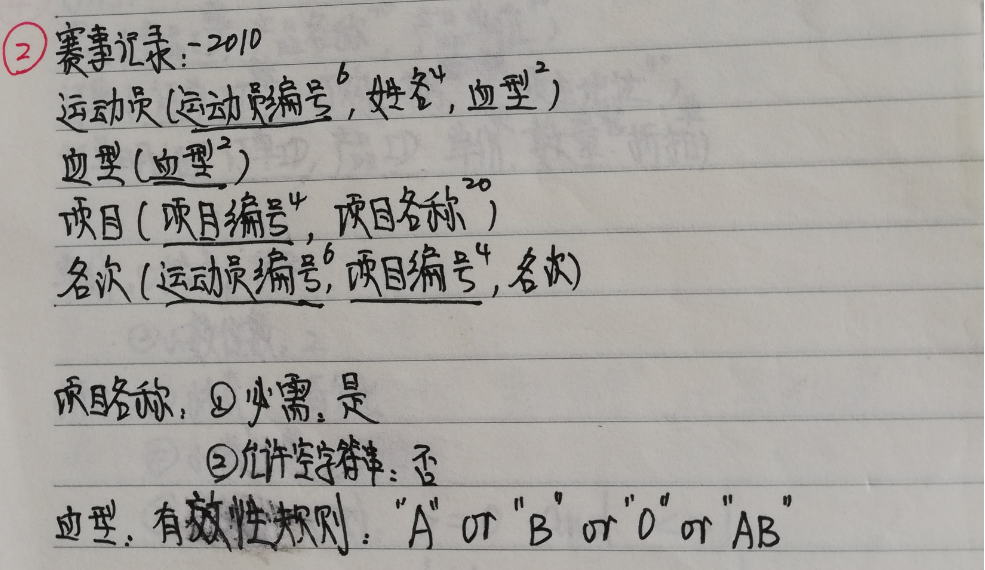 ② 赛事记录:-2010
运动员(运动员编号6, 姓名4, 血型2)
血型(血型2)
项目(项目编号4, 项目名称20)
名次(运动员编号6, 项目编号4, 名次)
项目名称: ①必需: 是
②允许空字符串: 否
血型: 有效性规则: "A" or "B" or "O" or "AB"